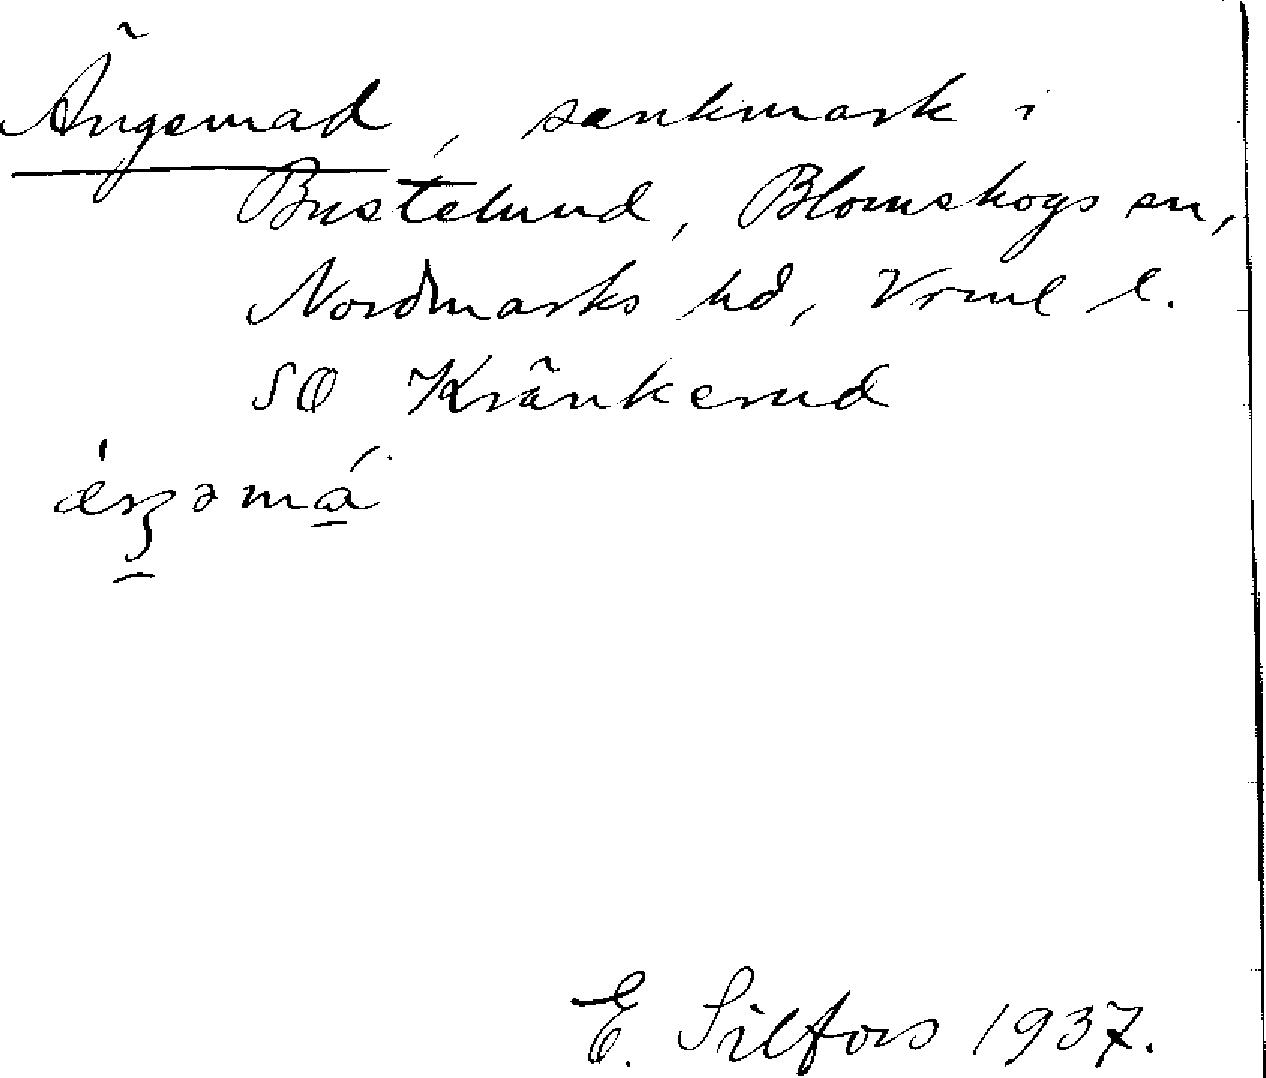 Ängemad, sankmark i
Bustelund, Blomskogs sn,
Nordmarks hd, Vrml l.
SO Kränkerud
E. Silfors 1937.